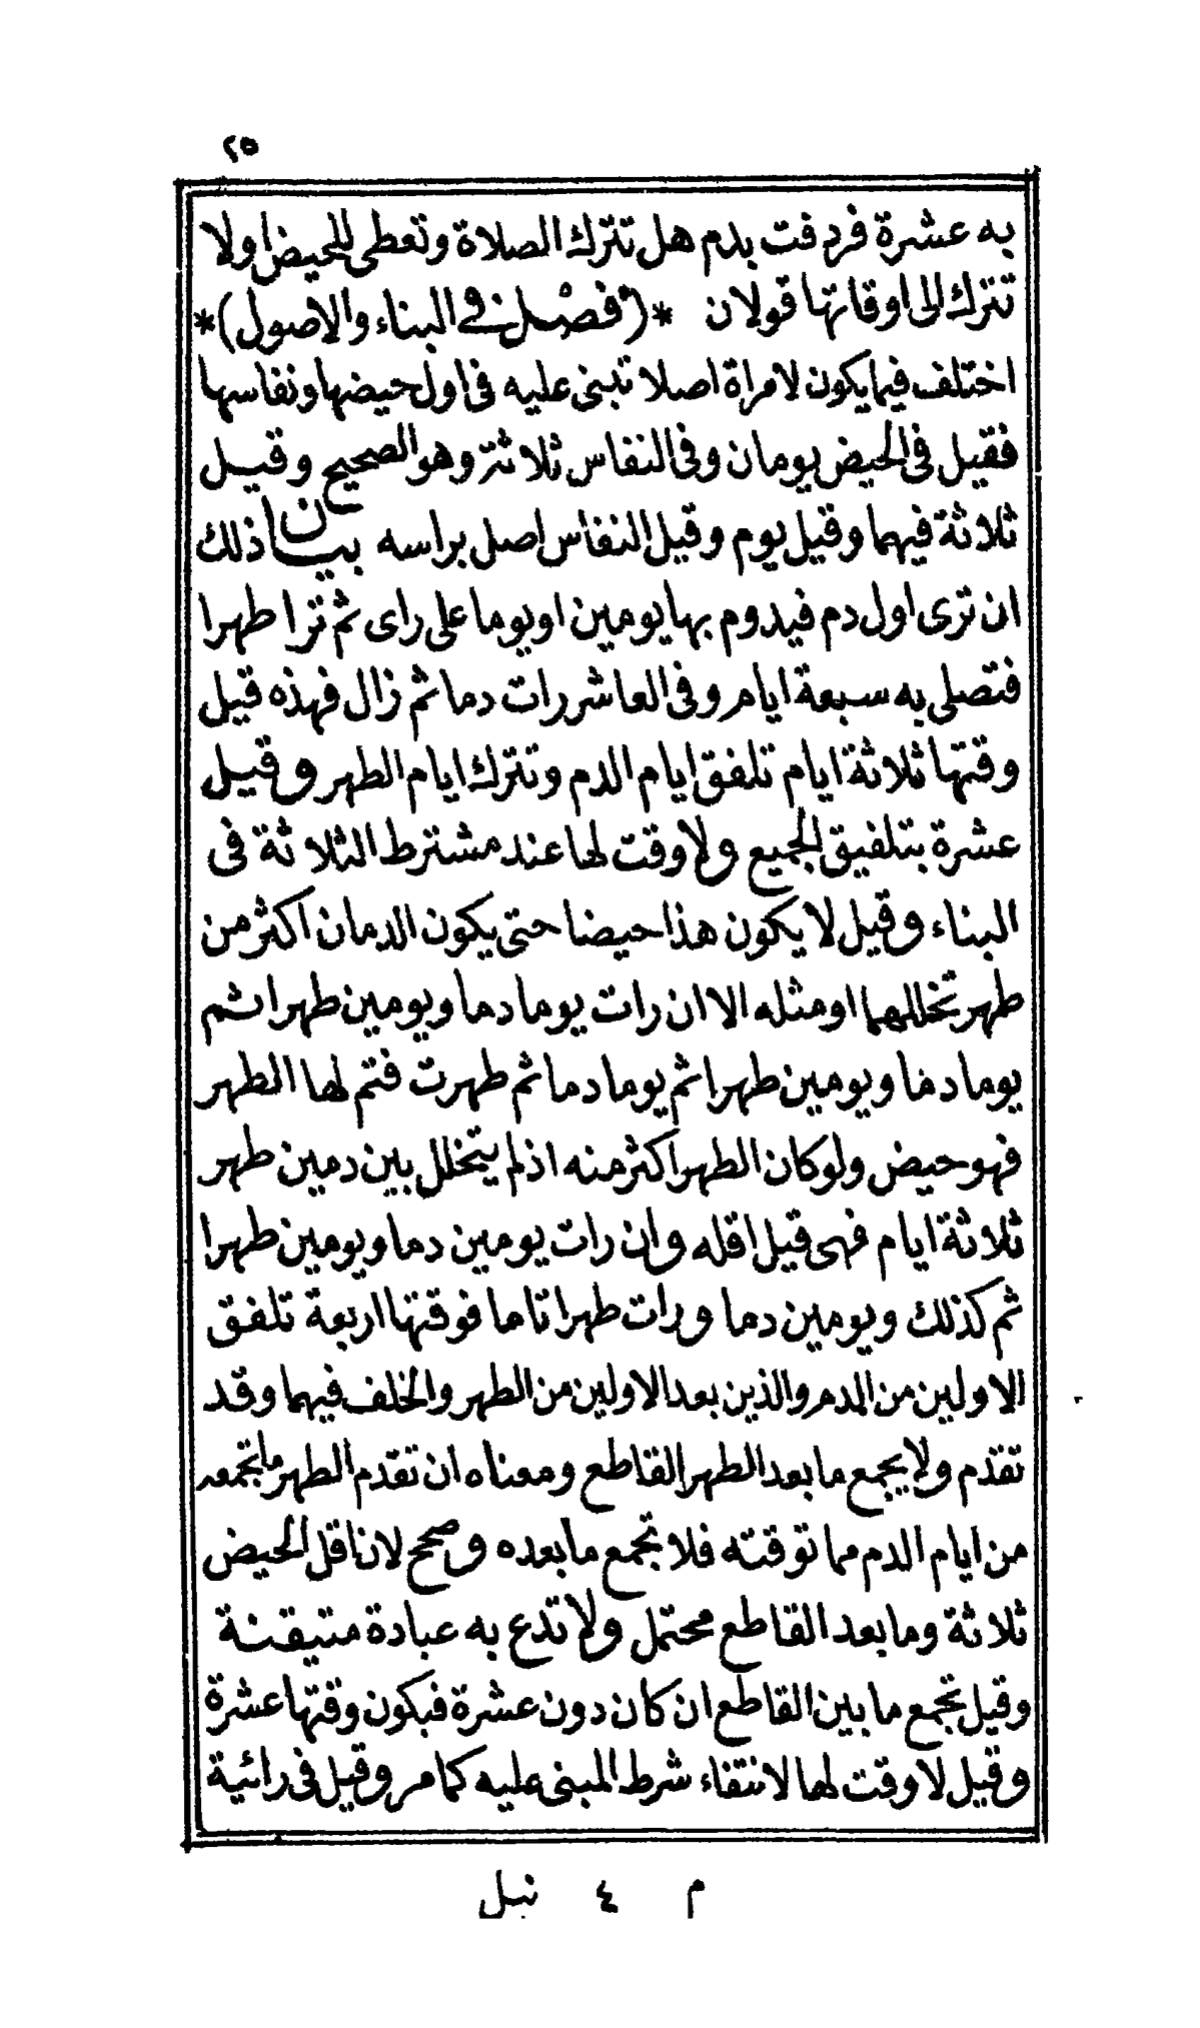 ٢٥
به عشرة فردفت بدم هل تترك الصلاة وتعطى للحيض اولا
تترك الى اوقاتها قولان * (فصل في البناء والاصول) *
اختلف فيما يكون لامراة اصلا تبنى عليه فى اول حيضها ونفاسها
فقيل فى الحيض يومان وفى النفاس ثلاثة وهو الصحيح وقيل
ثلاثة فيهما وقيل يوم وقيل النفاس اصل براسه بيان ذلك
ان ترى اول دم فيدوم بها يومين او يوما على راى ثم ترا طهرا
فتصلى به سبعة ايام وفى العاشر رات دما ثم زال فهذه قيل
وقتها ثلاثة ايام تلفق ايام الدم وتترك ايام الطهر وقيل
عشرة بتلفيق الجميع ولا وقت لها عند مشترط الثلاثة فى
البناء وقيل لا يكون هذا حيضا حتى يكون الدمان اكثر من
طهر تخللهما او مثله الا ان رات يوما دما ويومين طهرا ثم
يوما دما ويومين طهرا ثم يوما دما ثم طهرت فتم لها الطهر
فهو حيض ولو كان الطهر اكثر منه اذ لم يتخلل بين دمين طهر
ثلاثة ايام فهى قيل اقله وان رات يومين دما ويومين طهرا
ثم كذلك ويومين دما ورات طهرا تاما فوقتها اربعة تلفق
الاولين من الدم والذين بعد الاولين من الطهر والخلف فيهما وقد
تقدم ولا يجمع ما بعد الطهر القاطع ومعناه ان تقدم الطهر ما تجمعه
من ايام الدم مما توقته فلا تجمع ما بعده وصحح لان اقل الحيض
ثلاثة وما بعد القاطع محتمل ولا تدع به عبادة متيقنة
وقيل تجمع ما بين القاطع ان كان دون عشرة فيكون وقتها عشرة
وقيل لا وقت لها لانتفاء شرط المبنى عليه كما مر وقيل فى رائية
م ٤ نيل